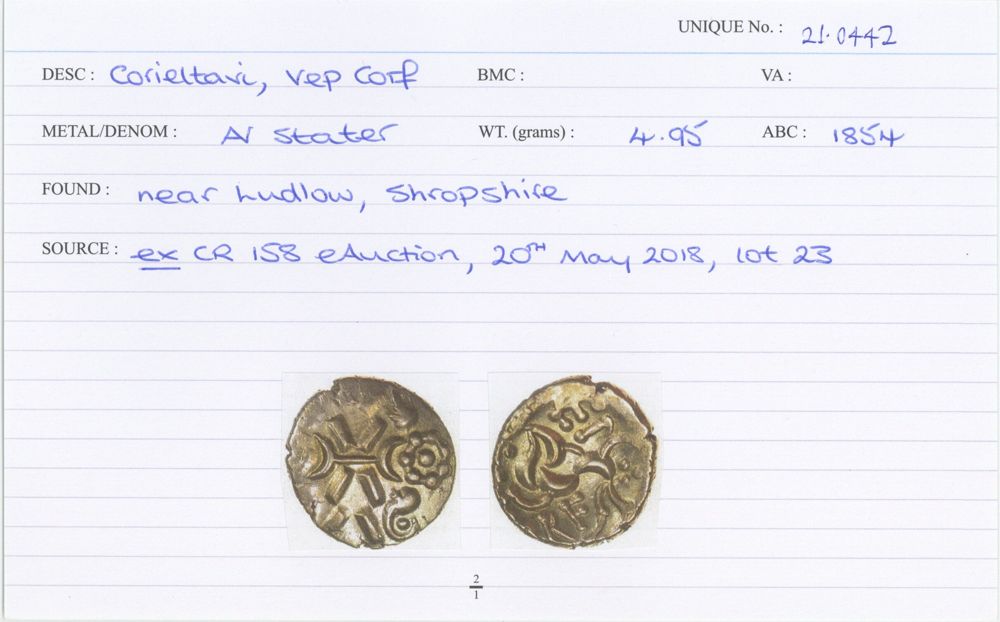 UNIQUE No. : 21.0442
DESC : Corieltavi, Vep Corf BMC : VA :
METAL/DENOM : AV Stater WT. (grams) : 4.95 ABC : 1854
FOUND : near Ludlow, Shropshire
SOURCE : ex CR 158 eAuction, 20TH May 2018, lot 23
2
1